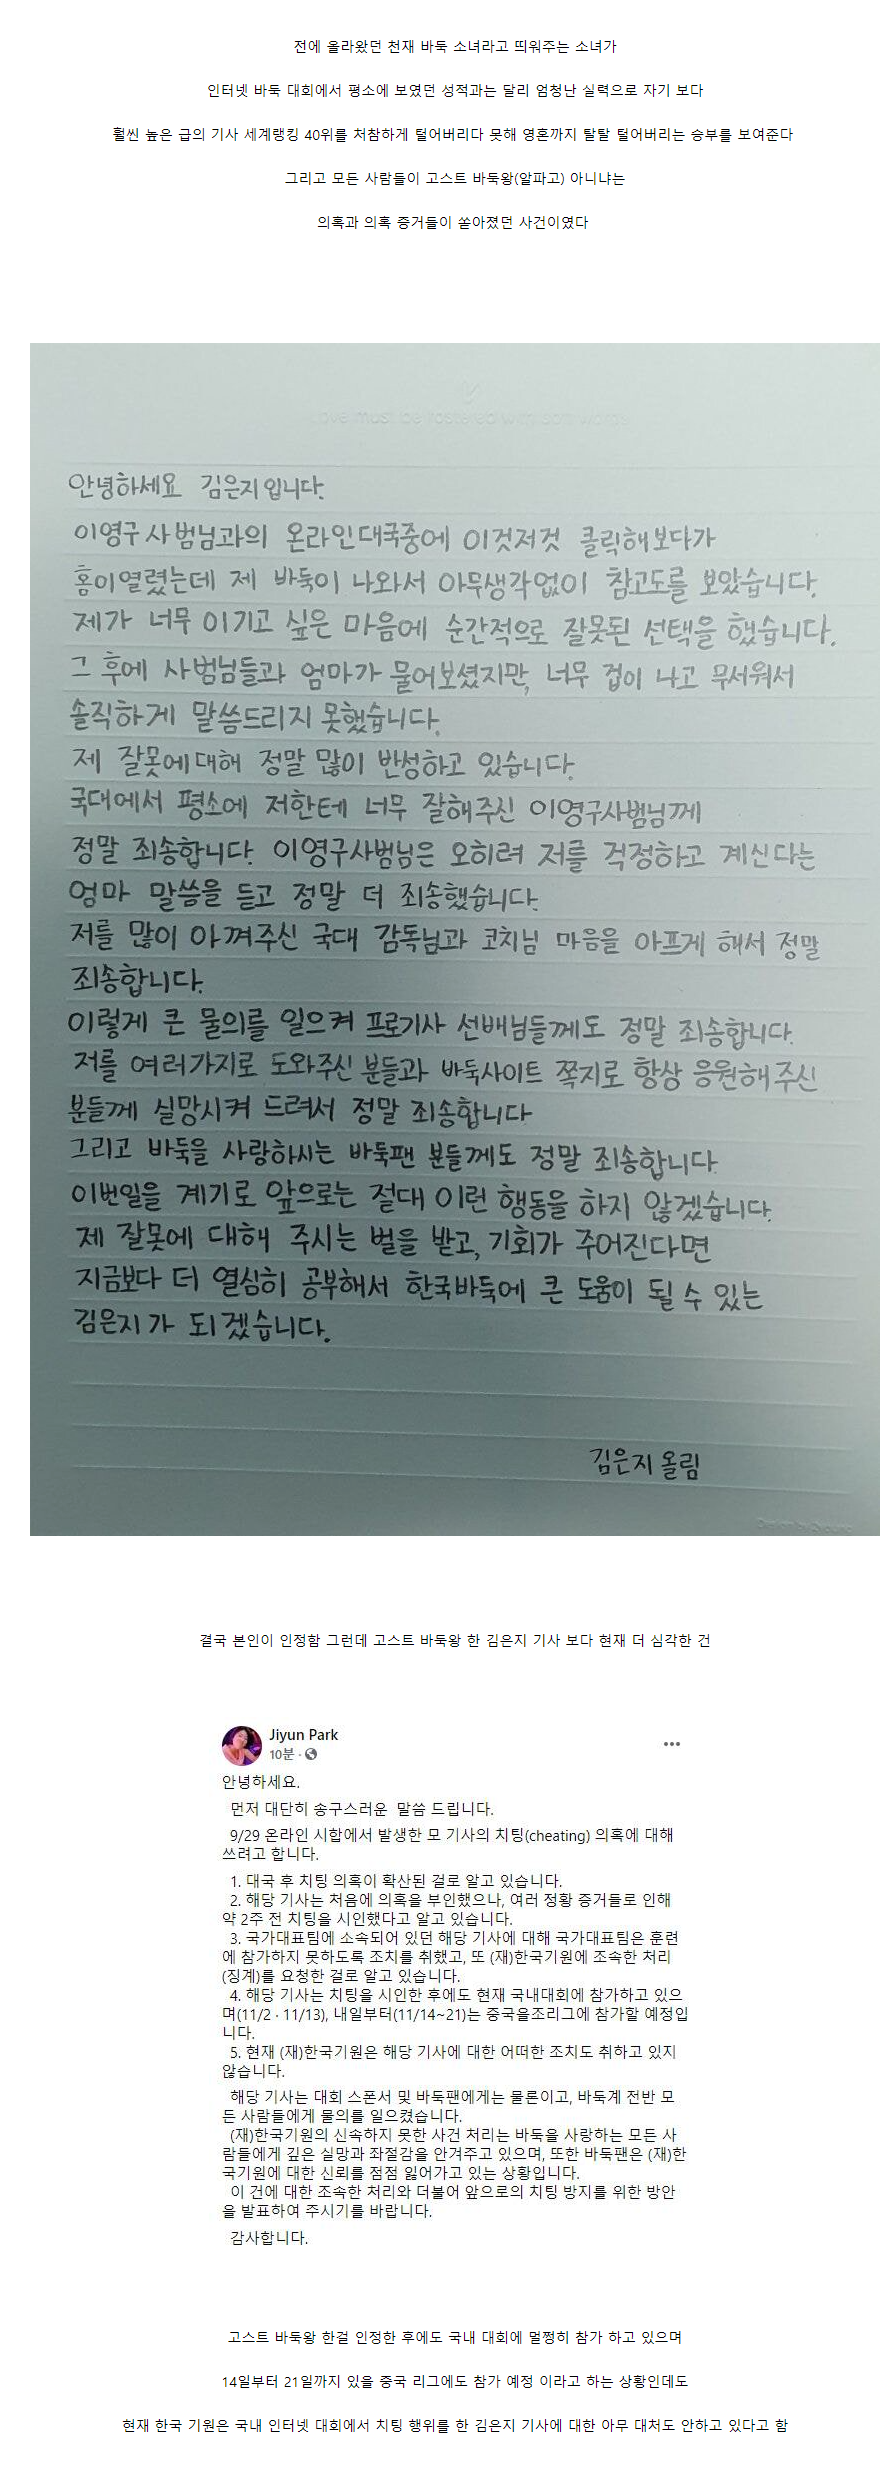 전에 올라왔던 천재 바둑 소녀라고 띄워주는 소녀가
인터넷 바둑 대회에서 평소에 보였던 성적과는 달리 엄청난 실력으로 자기 보다
훨씬 높은 급의 기사 세계랭킹 40위를 처참하게 털어버리다 못해 영혼까지 탈탈 털어버리는 승부를 보여준다
그리고 모든 사람들이 고스트 바둑왕(알파고) 아니냐는
의혹과 의혹 증거들이 쏟아졌던 사건이였다
Love must be fostered with soft words
안녕하세요 김은지입니다.
이영구 사범님과의 온라인대국중에 이것저것 클릭해보다가
홈이열렸는데 제 바둑이 나와서 아무생각없이 참고도를 보았습니다.
제가 너무 이기고 싶은 마음에 순간적으로 잘못된 선택을 했습니다.
그 후에 사범님들과 엄마가 물어보셨지만, 너무 겁이 나고 무서워서
솔직하게 말씀드리지 못했습니다.
제 잘못에대해 정말 많이 반성하고 있습니다.
국대에서 평소에 저한테 너무 잘해주신 이영구사범님께
정말 죄송합니다. 이영구사범님은 오히려 저를 걱정하고 계신다는
엄마 말씀을 듣고 정말 더 죄송했습니다.
저를 많이 아껴주신 국대 감독님과 코치님 마음을 아프게 해서 정말
죄송합니다.
이렇게 큰 물의를 일으켜 프로기사 선배님들께도 정말 죄송합니다.
저를 여러가지로 도와주신 분들과 바둑사이트 쪽지로 항상 응원해주신
분들께 실망시켜 드려서 정말 죄송합니다
그리고 바둑을 사랑하시는 바둑팬 분들께도 정말 죄송합니다.
이번일을 계기로 앞으로는 절대 이런 행동을 하지 않겠습니다.
제 잘못에 대해 주시는 벌을 받고, 기회가 주어진다면
지금보다 더 열심히 공부해서 한국바둑에 큰 도움이 될 수 있는
김은지가 되겠습니다.
김은지 올림
결국 본인이 인정함 그런데 고스트 바둑왕 한 김은지 기사 보다 현재 더 심각한 건
Jiyun Park
10분 ·
안녕하세요.
먼저 대단히 송구스러운 말씀 드립니다.
9/29 온라인 시합에서 발생한 모 기사의 치팅(cheating) 의혹에 대해
쓰려고 합니다.
1. 대국 후 치팅 의혹이 확산된 걸로 알고 있습니다.
2. 해당 기사는 처음에 의혹을 부인했으나, 여러 정황 증거들로 인해
약 2주 전 치팅을 시인했다고 알고 있습니다.
3. 국가대표팀에 소속되어 있던 해당 기사에 대해 국가대표팀은 훈련
에 참가하지 못하도록 조치를 취했고, 또 (재)한국기원에 조속한 처리
(징계)를 요청한 걸로 알고 있습니다.
4. 해당 기사는 치팅을 시인한 후에도 현재 국내대회에 참가하고 있으
며(11/2 · 11/13), 내일부터(11/14~21)는 중국을조리그에 참가할 예정입
니다.
5. 현재 (재)한국기원은 해당 기사에 대한 어떠한 조치도 취하고 있지
않습니다.
해당 기사는 대회 스폰서 및 바둑팬에게는 물론이고, 바둑계 전반 모
든 사람들에게 물의를 일으켰습니다.
(재)한국기원의 신속하지 못한 사건 처리는 바둑을 사랑하는 모든 사
람들에게 깊은 실망과 좌절감을 안겨주고 있으며, 또한 바둑팬은 (재)한
국기원에 대한 신뢰를 점점 잃어가고 있는 상황입니다.
이 건에 대한 조속한 처리와 더불어 앞으로의 치팅 방지를 위한 방안
을 발표하여 주시기를 바랍니다.
감사합니다.
고스트 바둑왕 한걸 인정한 후에도 국내 대회에 멀쩡히 참가 하고 있으며
14일부터 21일까지 있을 중국 리그에도 참가 예정 이라고 하는 상황인데도
현재 한국 기원은 국내 인터넷 대회에서 치팅 행위를 한 김은지 기사에 대한 아무 대처도 안하고 있다고 함